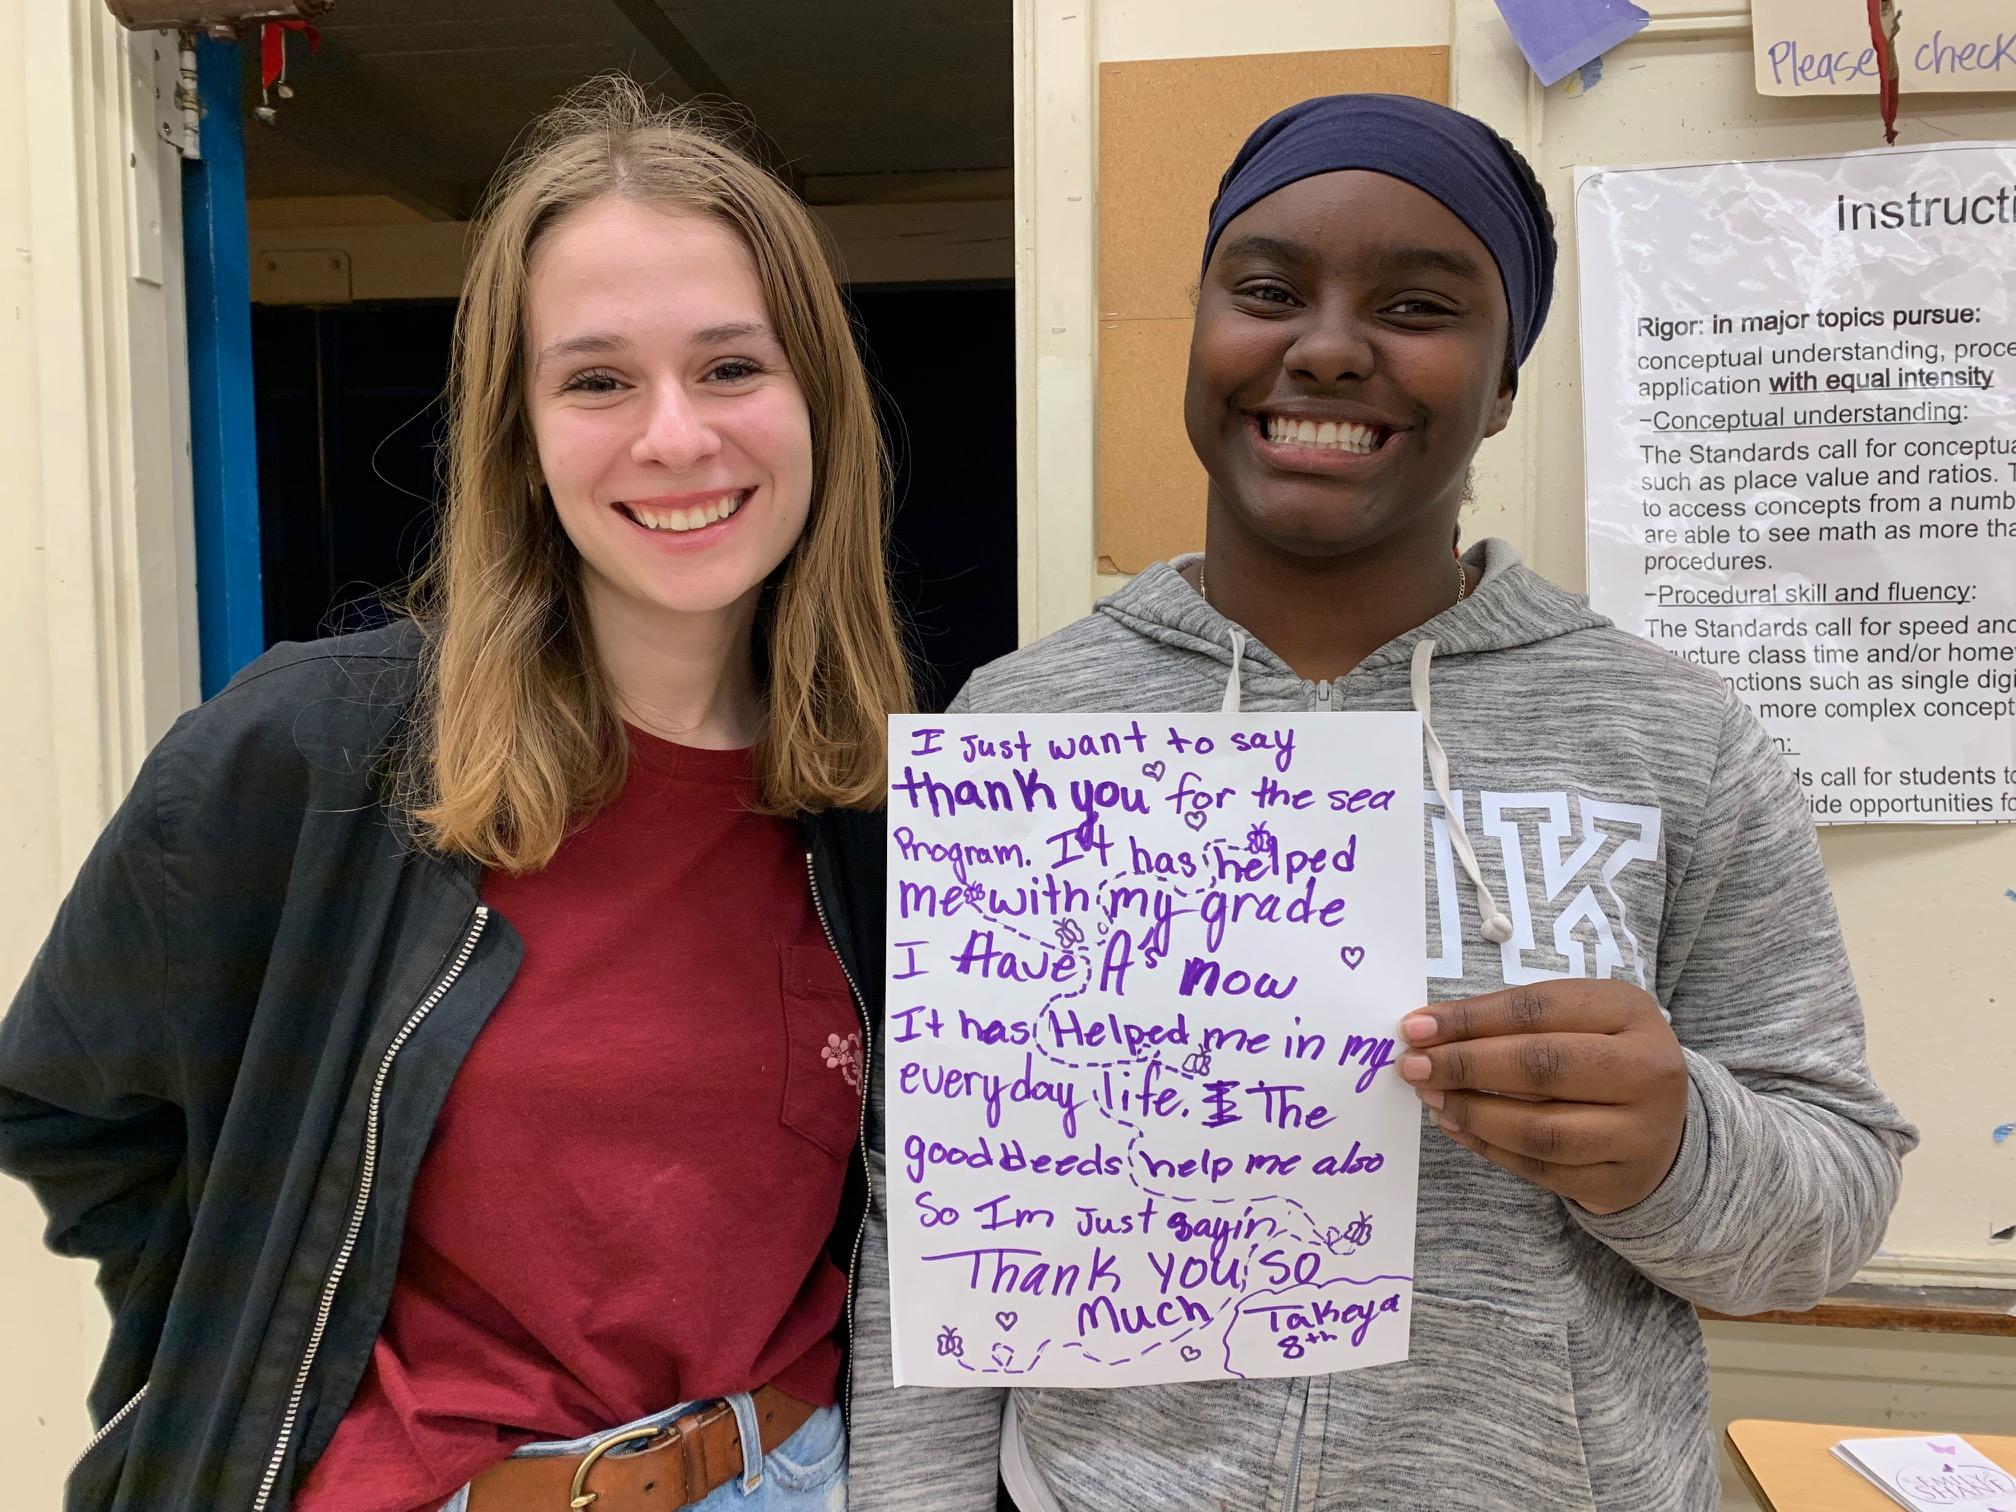 Please check
I Just want to say
thank you for the sea
Program. It has helped
me with my grade
I Have A's now
It has Helped me in my
everyday life. The
good deeds help me also
So Im Just sayin
Thank You so
Much
Takeya
8th
Instructi
Rigor: in major topics pursue:
conceptual understanding, proce
application with equal intensity
-Conceptual understanding:
The Standards call for conceptua
such as place value and ratios. T
to access concepts from a numb
are able to see math as more tha
procedures.
-Procedural skill and fluency:
The Standards call for speed and
ucture class time and/or home
nctions such as single digi
more complex concept
n:
ds call for students to
vide opportunities fo
NK
EMILY
SHANE